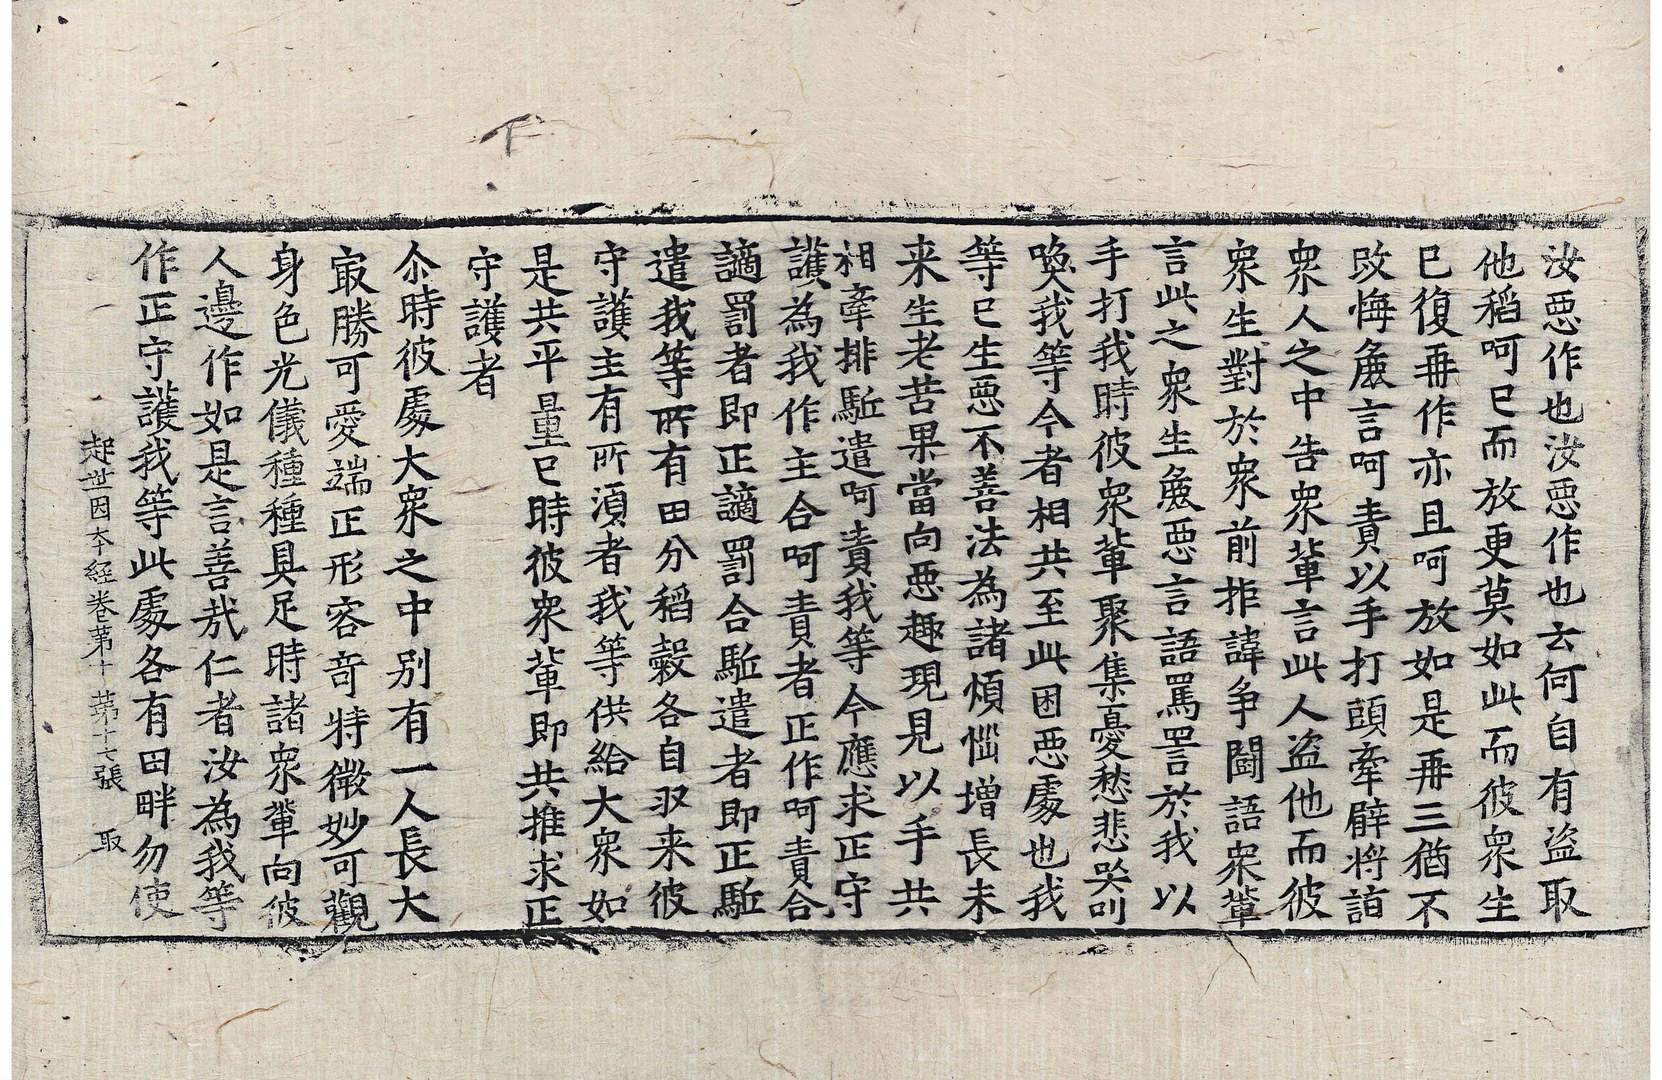 汝惡作也汝惡作也去何自有盜取
他稻呵已而放更莫如此而彼衆生
已復再作亦且呵放如是再三猶不
改悔麁言呵責以手打頭牽臂將詣
衆人之中告衆輩言此人盜他而彼
衆生對於衆前拒諱爭鬪語衆輩
言此之衆生麁惡言語罵詈於我以
手打我時彼衆輩聚集憂愁悲哭叫
喚我等今者相共至此困惡處也我
等已生惡不善法為諸煩惱增長未
来生老苦果當向惡趣現見以手共
相牽排駈遣呵責我等今應求正守
護為我作主合呵責者正作呵責合
謫罰者即正謫罰合駈遣者即正駈
遣我等所有田分稻穀各自収来彼
守護主有所湏者我等供給大衆如
是共平量已時彼衆輩即共推求正
守護者
尒時彼處大衆之中別有一人長大
㝡勝可愛端正形容竒特微妙可觀
身色光儀種種具足時諸衆輩向彼
人邊作如是言善哉仁者汝為我等
作正守護我等此處各有田畔勿使
起世因本経卷第十 苐十七張 取
下